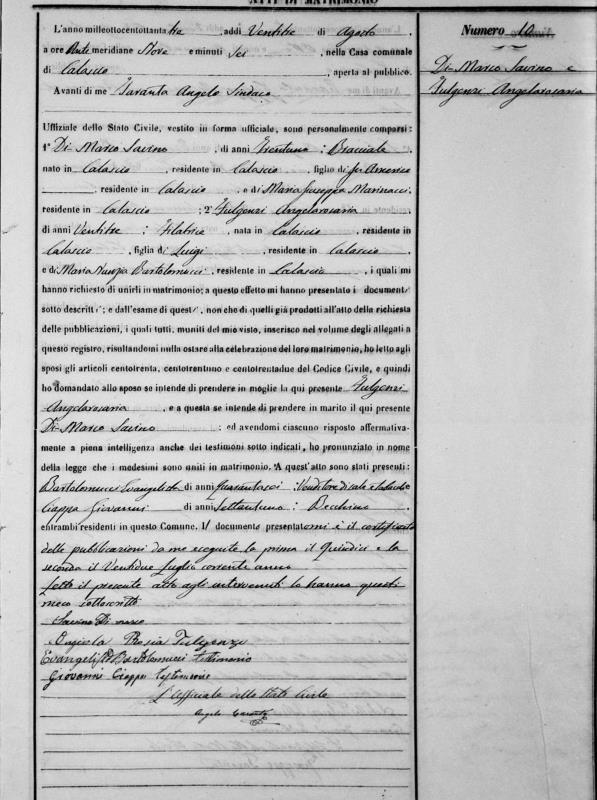 ATTI DI MATRIMONIO
Numero 10
Di Marco Savino e
Fulgenzi Angelarosaria
L'anno milleottocentottantatre, addì Ventitre di Agosto,
a ore Anti meridiane Nove e minuti Sei, nella Casa comunale
di Calascio, aperta al pubblico.
Avanti di me Taranta Angelo Sindaco
Uffiziale dello Stato Civile, vestito in forma ufficiale, sono personalmente comparsi:
1° Di Marco Savino, di anni Trentuno: Bracciale,
nato in Calascio, residente in Calascio, figlio di fu Americo
residente in Calascio, e di Maria Giuseppa Marinacci,
residente in Calascio; 2° Fulgenzi Angelarosaria
di anni Ventitre: Filatrice, nata in Calascio, residente in
Calascio, figlia di Luigi, residente in Calascio
e di Maria Nunzia Bartolomucci, residente in Calascio, i quali mi
hanno richiesto di unirli in matrimonio; a questo effetto mi hanno presentato i documenti
sotto descritti; e dall'esame di questi, non che di quelli già prodotti all'atto della richiesta
delle pubblicazioni, i quali tutti, muniti del mio visto, inserisco nel volume degli allegati a
questo registro, risultandomi nulla ostare alla celebrazione del loro matrimonio, ho letto agli
sposi gli articoli centotrenta, centotrentuno e centotrentadue del Codice Civile, e quindi
ho domandato allo sposo se intende di prendere in moglie la qui presente Fulgenzi
Angelarosaria, e a questa se intende di prendere in marito il qui presente
Di Marco Savino: ed avendomi ciascuno risposto affermativa-
mente a piena intelligenza anche dei testimoni sotto indicati, ho pronunziato in nome
della legge che i medesimi sono uniti in matrimonio. A quest'atto sono stati presenti:
Bartolomucci Evangelista di anni quarantasei: Venditore di sale e tabacchi
Ciappa Giovanni di anni Settantuno: Becchino
entrambi residenti in questo Comune. I documenti presentatomi è il certificato
delle pubblicazioni da me eseguite la prima il Quindici e la
seconda il Ventidue Luglio corrente anno
Letto il presente atto agli intervenuti lo hanno questi
meco sottoscritto
Savino Di marco
Angiola Rosia Fulgenzi
Evangelista Bartolomucci testimonio
Giovanni Ciappa testimonio
L'Uffiziale dello Stato Civile
Angelo Taranta